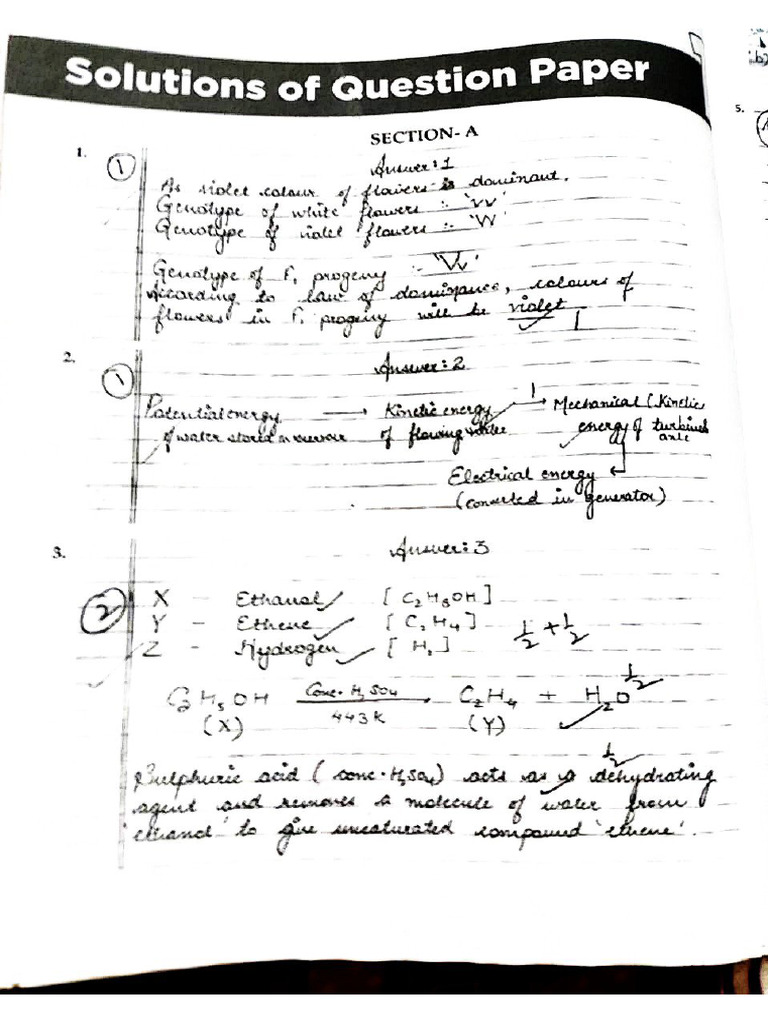 Solutions of Question Paper
SECTION- A
1.
1
Answer: 1
As violet colour of flowers is dominant.
Genotype of white flowers :- 'vv'
Genotype of violet flowers :- 'VV'
Genotype of F₁ progeny :- 'Vv'
According to law of dominance, colours of
flowers in F₁ progeny will be violet
1
2.
1
Answer: 2
Potential energy → Kinetic energy → Mechanical (Kinetic
of water stored in reservoir of flowing water energy of turbine's
axle
1
Electrical energy
(converted in generator)
3.
Answer: 3
2
X - Ethanol [C₂H₅OH]
Y - Ethene [C₂H₄]
Z - Hydrogen [H₂]
½ + ½
C₂H₅OH Conc. H₂SO₄ → C₂H₄ + H₂O
½
(X) 443K (Y)
½
Sulphuric acid (conc. H₂SO₄) acts as a dehydrating
agent and removes a molecule of water from
'ethanol' to give unsaturated compound 'ethene'.
5.